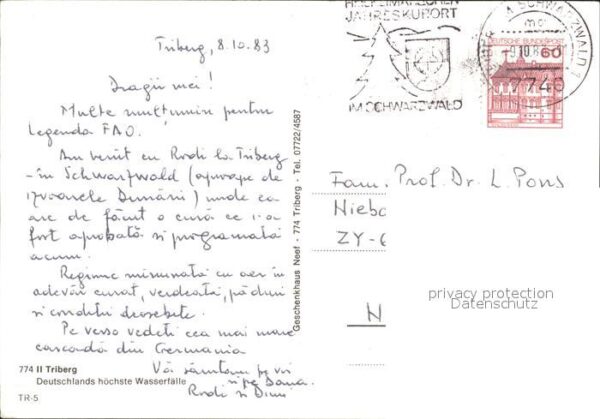 Triberg, 8.10.83
Dragii mei!
Multe mulțumiri pentru
legenda FAO.
Am venit cu Rodi la Triberg
în Schwarzwald (aproape de
izvoarele Dunării) unde ea
are de făcut o cură ce i-a
fost aprobată și programată
acum.
Regiune minunată cu aer în
adevăr curat, verdeată, păduri
și condiții deosebite.
Pe verso vedeți cea mai mare
cascadă din Germania
Vă sărutăm pe voi
și pe Dana.
Rodi și Dinu
774 II Triberg
Deutschlands höchste Wasserfälle
TR-5
Geschenkhaus Neef · 774 Triberg · Tel. 07722/4587
JAHRESKURORT
IM SCHWARZWALD
SCHWARZWALD 1
-9.10.8
7740
DEUTSCHE BUNDESPOST
60
Fam. Prof. Dr. L. Pons
Niebo
ZY-6
N
privacy protection
Datenschutz